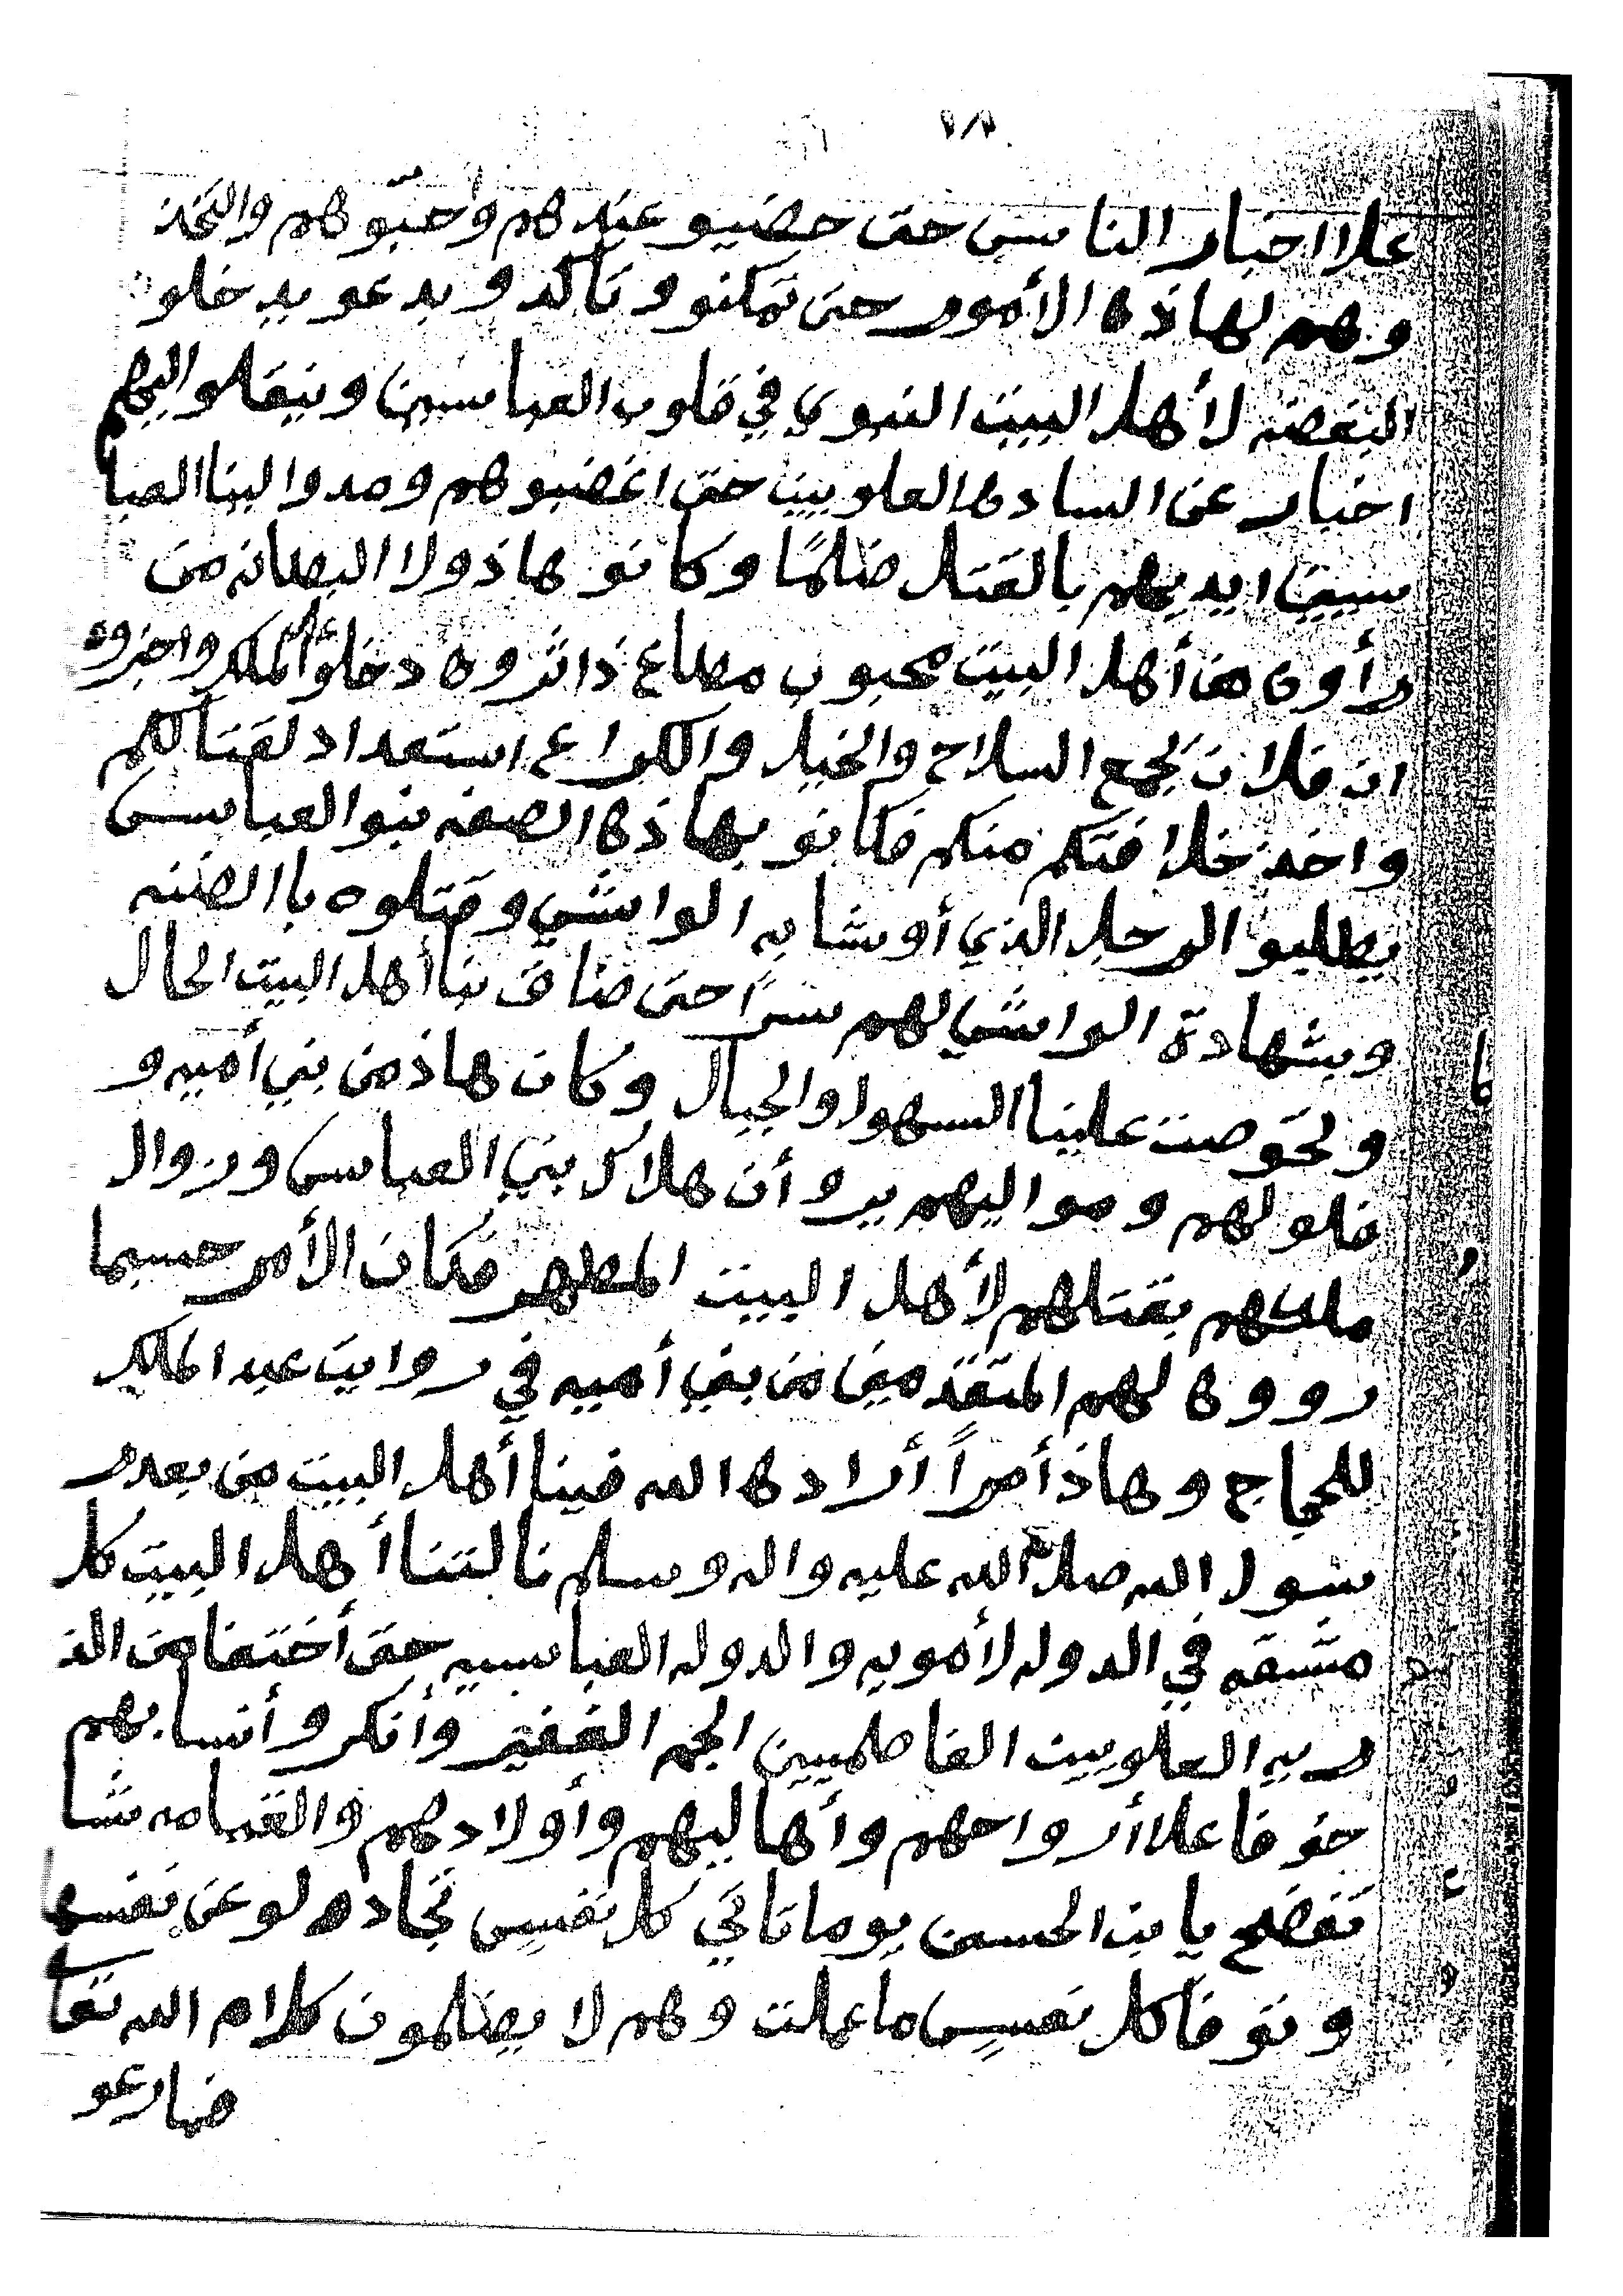 ١٨
علا اخبار الناس حتى حضيو عندهم وحبوهم واتخذ
وهم لهاذه الأمور حتى تمكنو وتأكدو بدعو يدخلو
البغضه لأهل البيت النبوي في قلوب العباسين وينقلوا اليهم
اخبار عن الساده العلويين حتى اغضبوهم ومدوا الينا العبا
سيين ايديهم بالقتل ضلمًا وكانو هاذولا البطانه من
رأوه من أهل البيت محبوب مطاع ذاثروه دخلو علا الملك واخبروه
ان فلان يجمع السلاح والخيل والكراع استعداد لقتالكم
واخذ خلافتكم منكم فكانو بهاذه الصفه بنو العباس
يطلبو الرجل الذي أوشا به الواشي وقتلوه باالضنه
وبشهادة الواشي لهم سرًا حتى ضاق بنا أهل البيت الحال
ولحوصت علينا السهول والجبال وكان هاذ من بني أميه و
فلولهم ومواليهم يرو أن هلاك بني العباس وزوال
ملكهم بقتلهم لأهل البيت المطهر فكان الأمر حسبما
رووه لهم المتقدمين من بني أميه في روايت عبد الملك
للحجاج وهاذ أمراً أراده الله فينا أهل البيت من بعد ر
سول الله صلا الله عليه واله وسلم نالتنا أهل البيت كل
مشقه في الدوله لأمويه والدوله العباسيه حتى أختفا من الذ
ريه العلويين الفاطميين الجم الغفير وأنكرو أنسابهم
خوفا علا أرواحهم وأهاليهم وأولادهم والقيامه شا
تفضح يا بن الحسين يوما تاتي كل نفسٍ تجادلو عن نفسها
وتوفا كل نفسٍ ما عملت وهم لا يضلمون كلام الله تعا
فسارعو